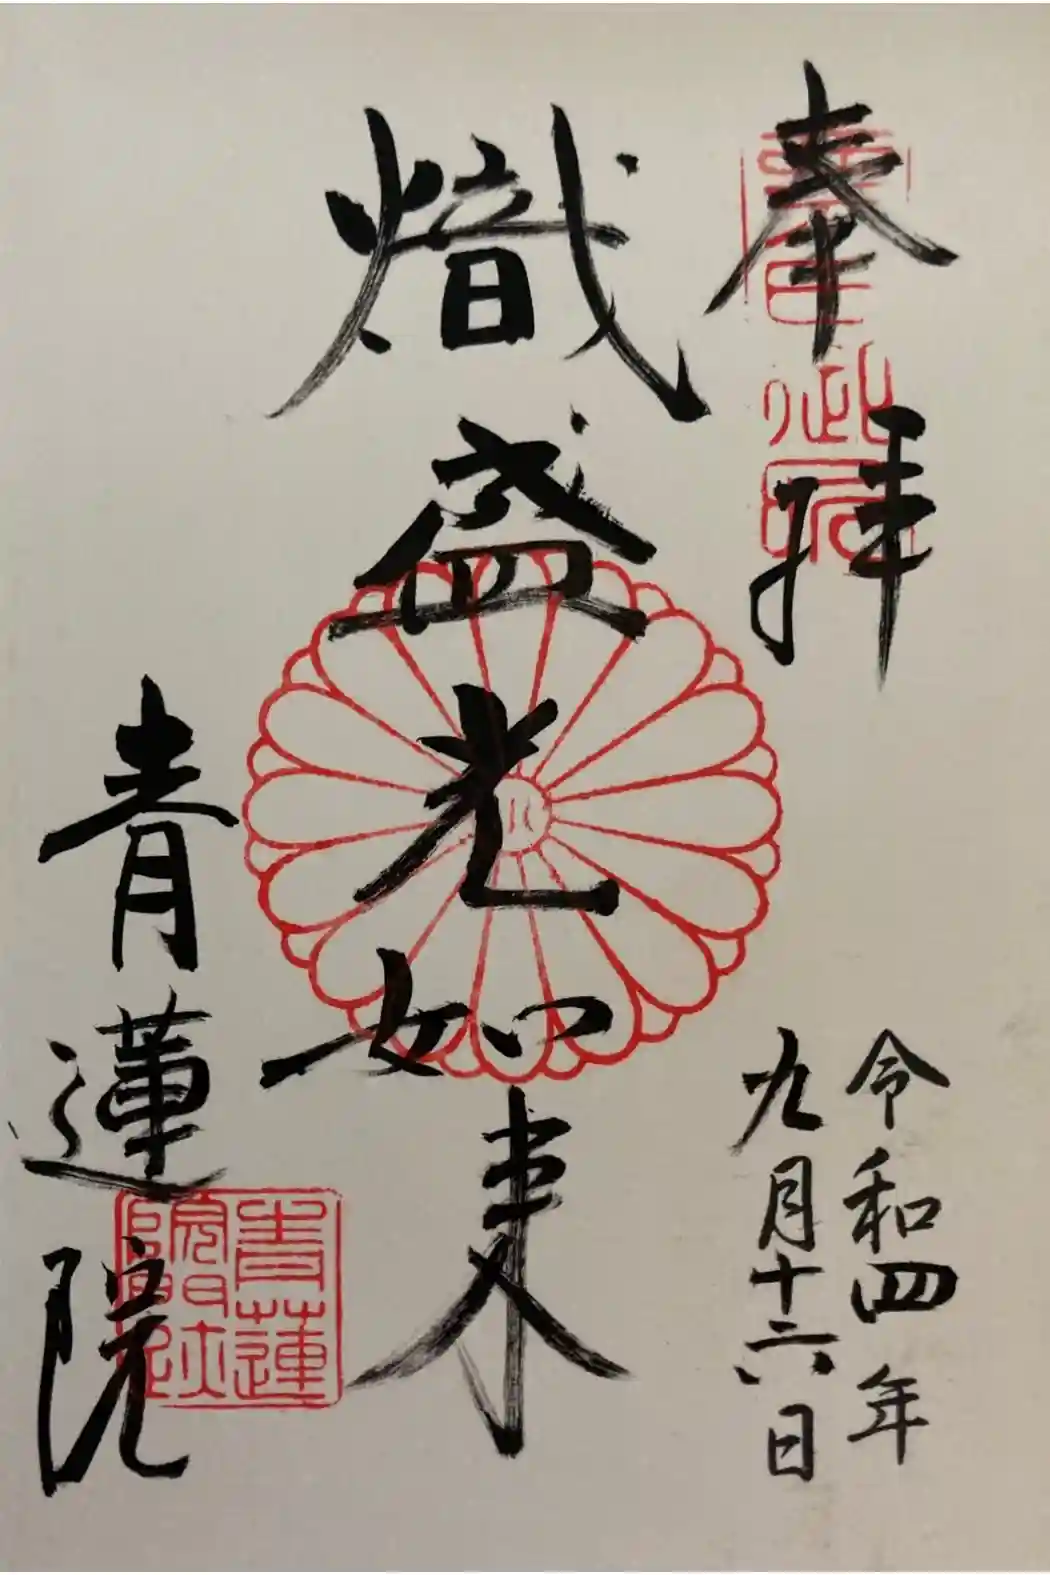 奉拝
令和四年
九月十六日
熾盛光如来
青蓮院
青蓮
院門跡